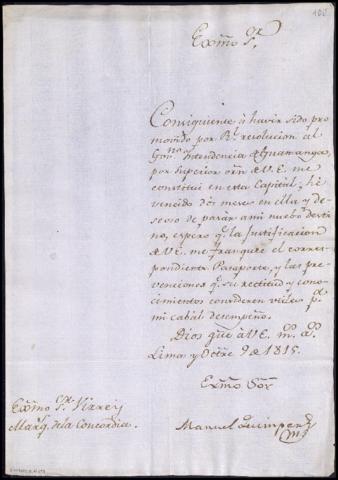 100
Exmo Sr.
Consiguiente à haver sido pro
movido por Rl. resolucion al
Govno. Intendencia de Guamanga,
por superior orn de V.E. me
constitui en esta Capital, hè
vencido dos meses en ella y de-
seoso de pasar à mi nuebo desti
no, espero q.e la justificacion
de V.E. me franquee el corres-
pondiente Pasaporte, y las pre-
venciones q.e su rectitud y cono-
cimientos consideren utiles p.a
mi cabal desempeño.
Dios gue à V.E. m.s a.s
Lima y Octre 9 de 1815.
Exmo Sor
Manuel Quimper
Exmo Sr. Virrey
Marq.s de la Concordia.